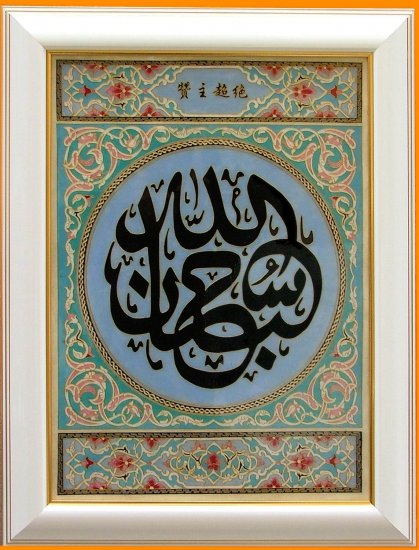 贊主超絕
سبحان الله